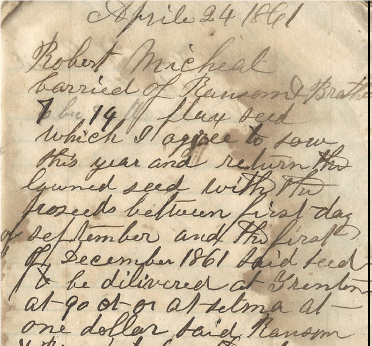 Aprile 24 1861
Robert Micheal
barried of Ransom & Broth
7 bu 14 flax seed
which I agree to sow
this year and return the
lowned seed with the
proseeds between first day
of september and the first
of December 1861 said seed
to be delivered at Trenton
at 90 ct or at selma at
one dollar said Ransom